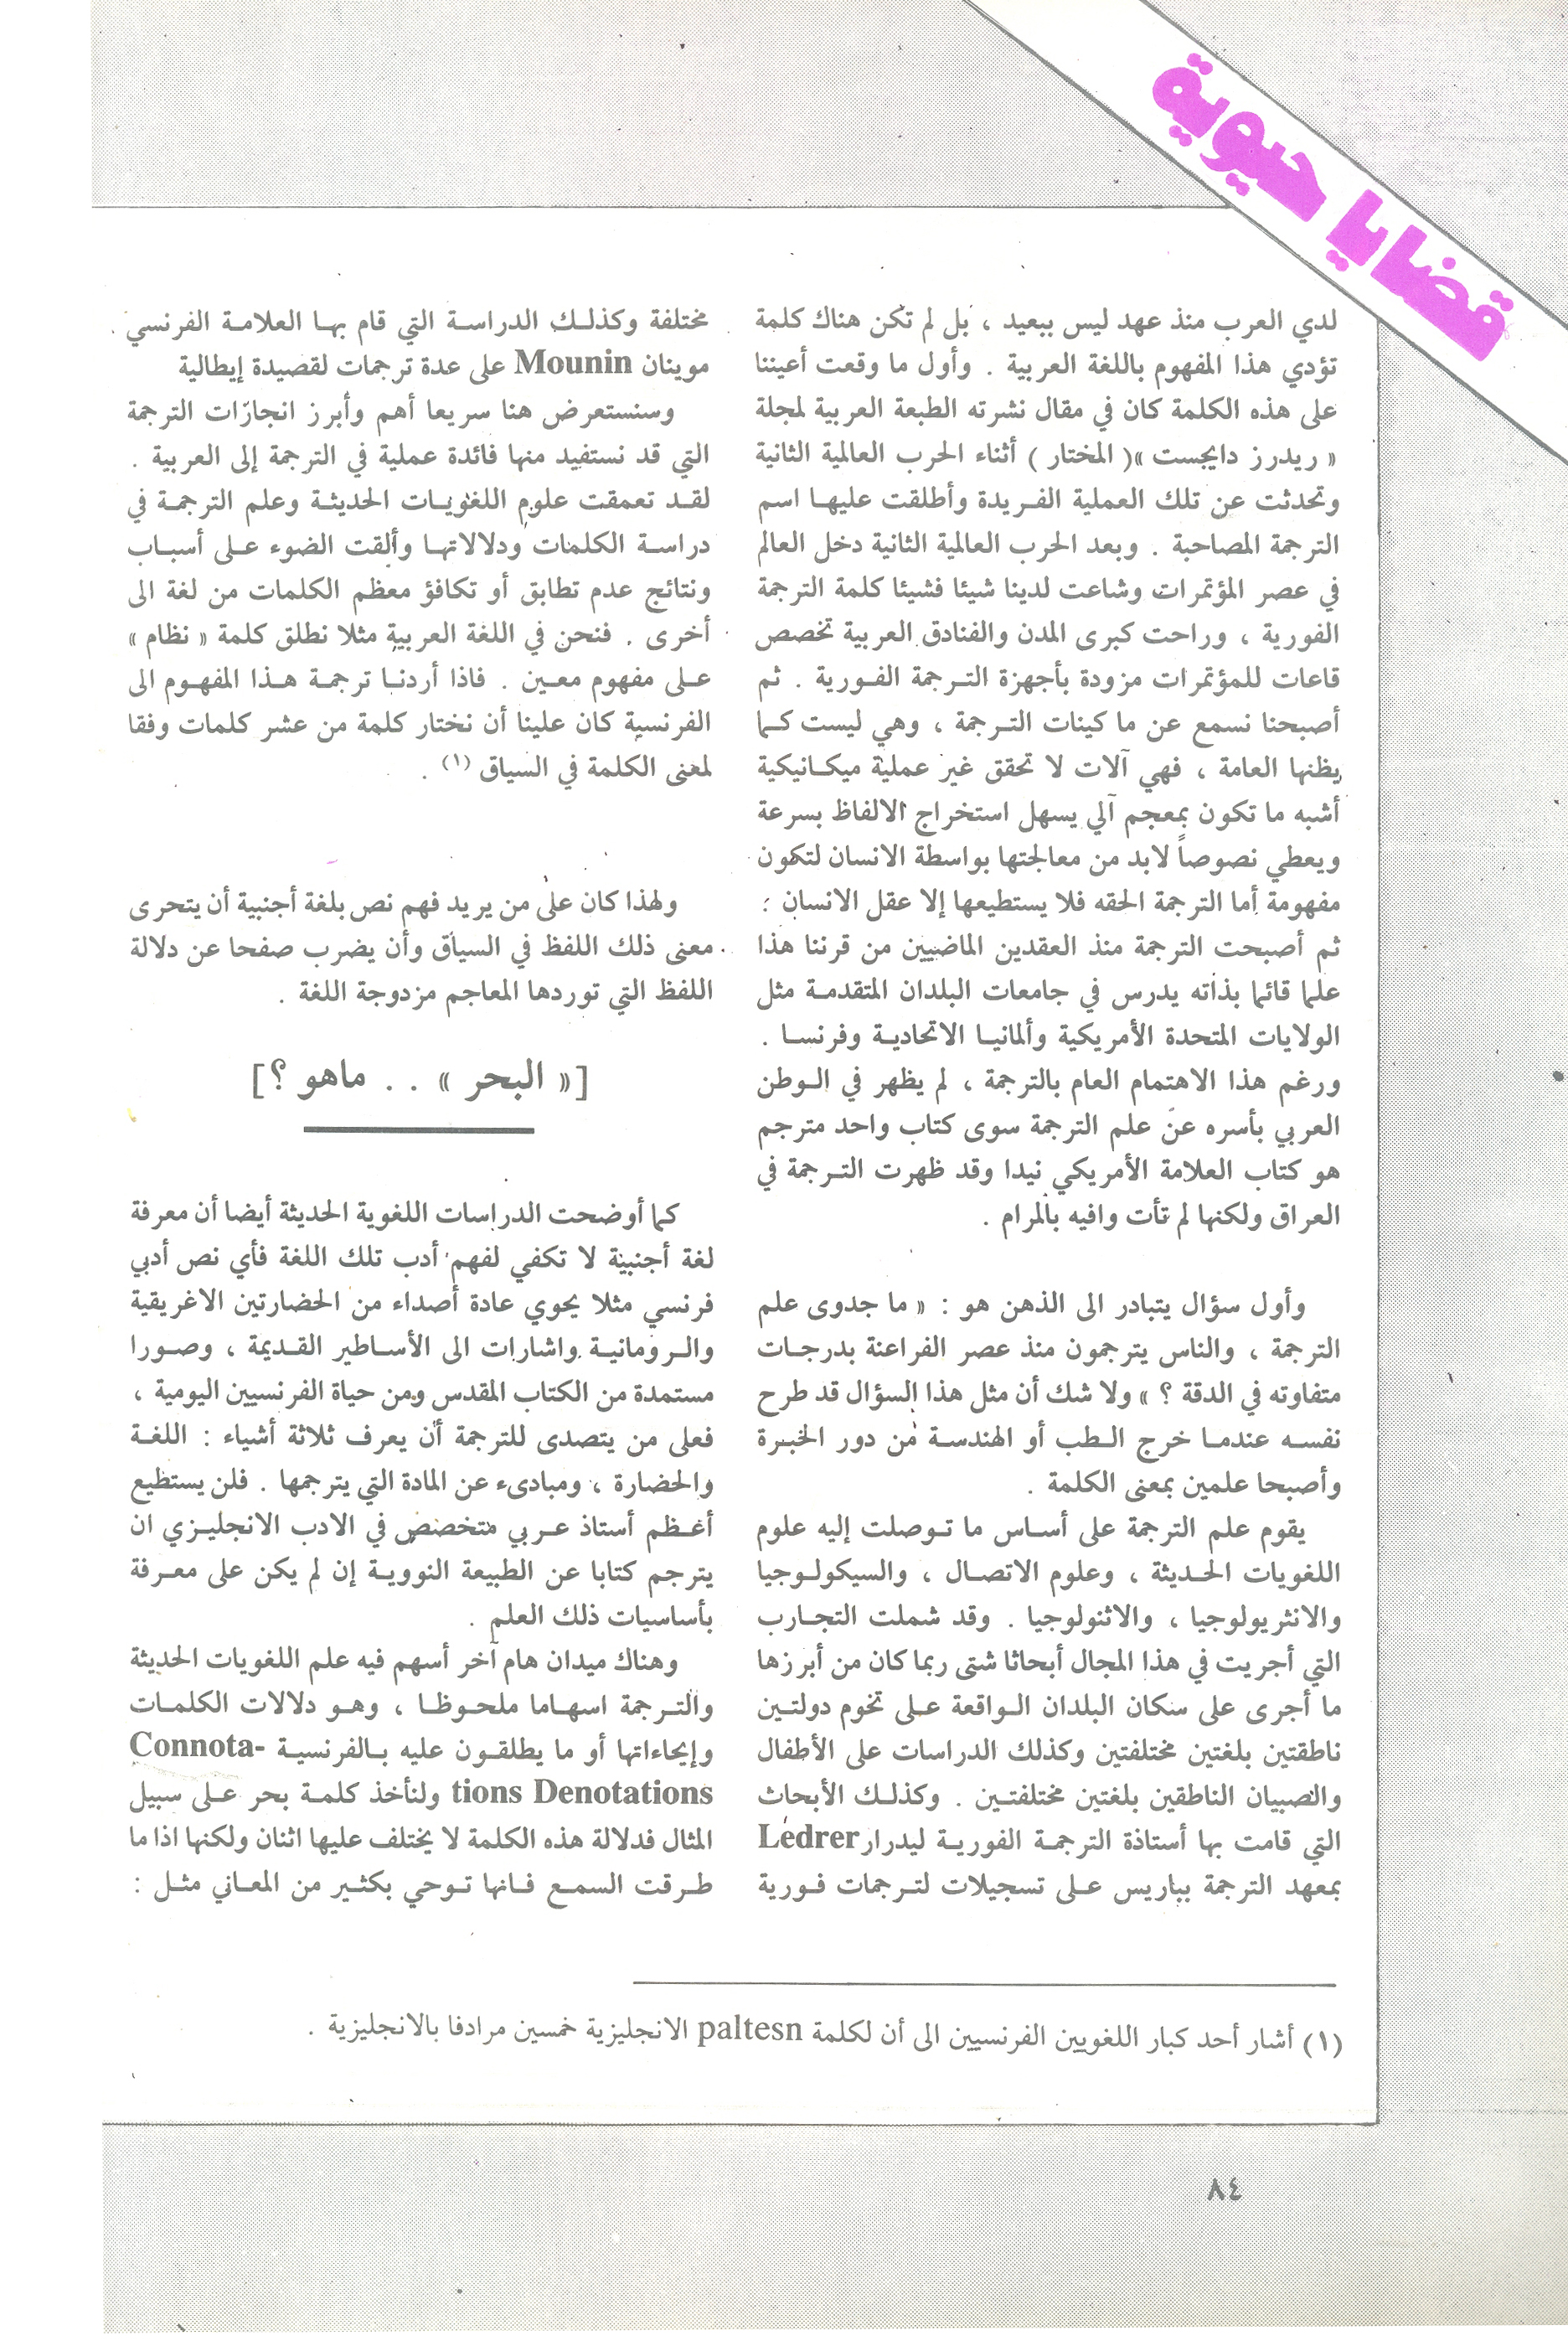 قضايا حيوية
لدي العرب منذ عهد ليس ببعيد ، بل لم تكن هناك كلمة
تؤدي هذا المفهوم باللغة العربية . وأول ما وقعت أعيننا
على هذه الكلمة كان في مقال نشرته الطبعة العربية لمجلة
« ريدرز دايجست »( المختار ) أثناء الحرب العالمية الثانية
وتحدثت عن تلك العملية الفريدة وأطلقت عليها اسم
الترجمة المصاحبة . وبعد الحرب العالمية الثانية دخل العالم
في عصر المؤتمرات وشاعت لدينا شيئا فشيئا كلمة الترجمة
الفورية ، وراحت كبرى المدن والفنادق العربية تخصص
قاعات للمؤتمرات مزودة بأجهزة الترجمة الفورية . ثم
أصبحنا نسمع عن ما كينات الترجمة ، وهي ليست كما
يظنها العامة ، فهي آلات لا تحقق غير عملية ميكانيكية
أشبه ما تكون بمعجم آلي يسهل استخراج الالفاظ بسرعة
ويعطي نصوصاً لابد من معالجتها بواسطة الانسان لتكون
مفهومة أما الترجمة الحقه فلا يستطيعها إلا عقل الانسان :
ثم أصبحت الترجمة منذ العقدين الماضيين من قرننا هذا
علما قائما بذاته يدرس في جامعات البلدان المتقدمة مثل
الولايات المتحدة الأمريكية وألمانيا الاتحادية وفرنسا .
ورغم هذا الاهتمام العام بالترجمة ، لم يظهر في الوطن
العربي بأسره عن علم الترجمة سوى كتاب واحد مترجم
هو كتاب العلامة الأمريكي نيدا وقد ظهرت الترجمة في
العراق ولكنها لم تأت وافيه بالمرام .
وأول سؤال يتبادر الى الذهن هو : « ما جدوى علم
الترجمة ، والناس يترجمون منذ عصر الفراعنة بدرجات
متفاوته في الدقة ؟ » ولا شك أن مثل هذا السؤال قد طرح
نفسه عندما خرج الطب أو الهندسة من دور الخبرة
وأصبحا علمين بمعنى الكلمة .
يقوم علم الترجمة على أساس ما توصلت إليه علوم
اللغويات الحديثة ، وعلوم الاتصال ، والسيكولوجيا
والانثريولوجيا ، والاثنولوجيا . وقد شملت التجارب
التي أجريت في هذا المجال أبحاثا شتى ربما كان من أبرزها
ما أجرى على سكان البلدان الواقعة على تخوم دولتين
ناطقتين بلغتين مختلفتين وكذلك الدراسات على الأطفال
والصبيان الناطقين بلغتين مختلفتين . وكذلك الأبحاث
التي قامت بها أستاذة الترجمة الفورية ليدرار Lédrer
بمعهد الترجمة بباريس على تسجيلات لترجمات فورية
مختلفة وكذلك الدراسة التي قام بها العلامة الفرنسي
موينان Mounin على عدة ترجمات لقصيدة إيطالية
وسنستعرض هنا سريعا أهم وأبرز انجازات الترجمة
التي قد نستفيد منها فائدة عملية في الترجمة إلى العربية .
لقد تعمقت علوم اللغويات الحديثة وعلم الترجمة في
دراسة الكلمات ودلالاتها وألقت الضوء على أسباب
ونتائج عدم تطابق أو تكافؤ معظم الكلمات من لغة الى
أخرى . فنحن في اللغة العربية مثلا نطلق كلمة « نظام »
على مفهوم معين . فاذا أردنا ترجمة هذا المفهوم الى
الفرنسية كان علينا أن نختار كلمة من عشر كلمات وفقا
لمعنى الكلمة في السياق (١) .
ولهذا كان على من يريد فهم نص بلغة أجنبية أن يتحرى
معنى ذلك اللفظ في السياق وأن يضرب صفحا عن دلالة
اللفظ التي توردها المعاجم مزدوجة اللغة .
[« البحر » . . ماهو ؟]
كما أوضحت الدراسات اللغوية الحديثة أيضا أن معرفة
لغة أجنبية لا تكفي لفهم أدب تلك اللغة فأي نص أدبي
فرنسي مثلا يحوي عادة أصداء من الحضارتين الاغريقية
والرومانية واشارات الى الأساطير القديمة ، وصورا
مستمدة من الكتاب المقدس ومن حياة الفرنسيين اليومية ،
فعلى من يتصدى للترجمة أن يعرف ثلاثة أشياء : اللغة
والحضارة ، ومبادىء عن المادة التي يترجمها . فلن يستطيع
أعظم أستاذ عربي متخصص في الادب الانجليزي ان
يترجم كتابا عن الطبيعة النووية إن لم يكن على معرفة
بأساسيات ذلك العلم .
وهناك ميدان هام آخر أسهم فيه علم اللغويات الحديثة
والترجمة اسهاما ملحوظا ، وهو دلالات الكلمات
وإيحاءاتها أو ما يطلقون عليه بالفرنسية Connota-
tions Denotations ولنأخذ كلمة بحر على سبيل
المثال فدلالة هذه الكلمة لا يختلف عليها اثنان ولكنها اذا ما
طرقت السمع فانها توحي بكثير من المعاني مثل :
(١) أشار أحد كبار اللغويين الفرنسيين الى أن لكلمة paltesn الانجليزية خمسين مرادفا بالانجليزية .
٨٤